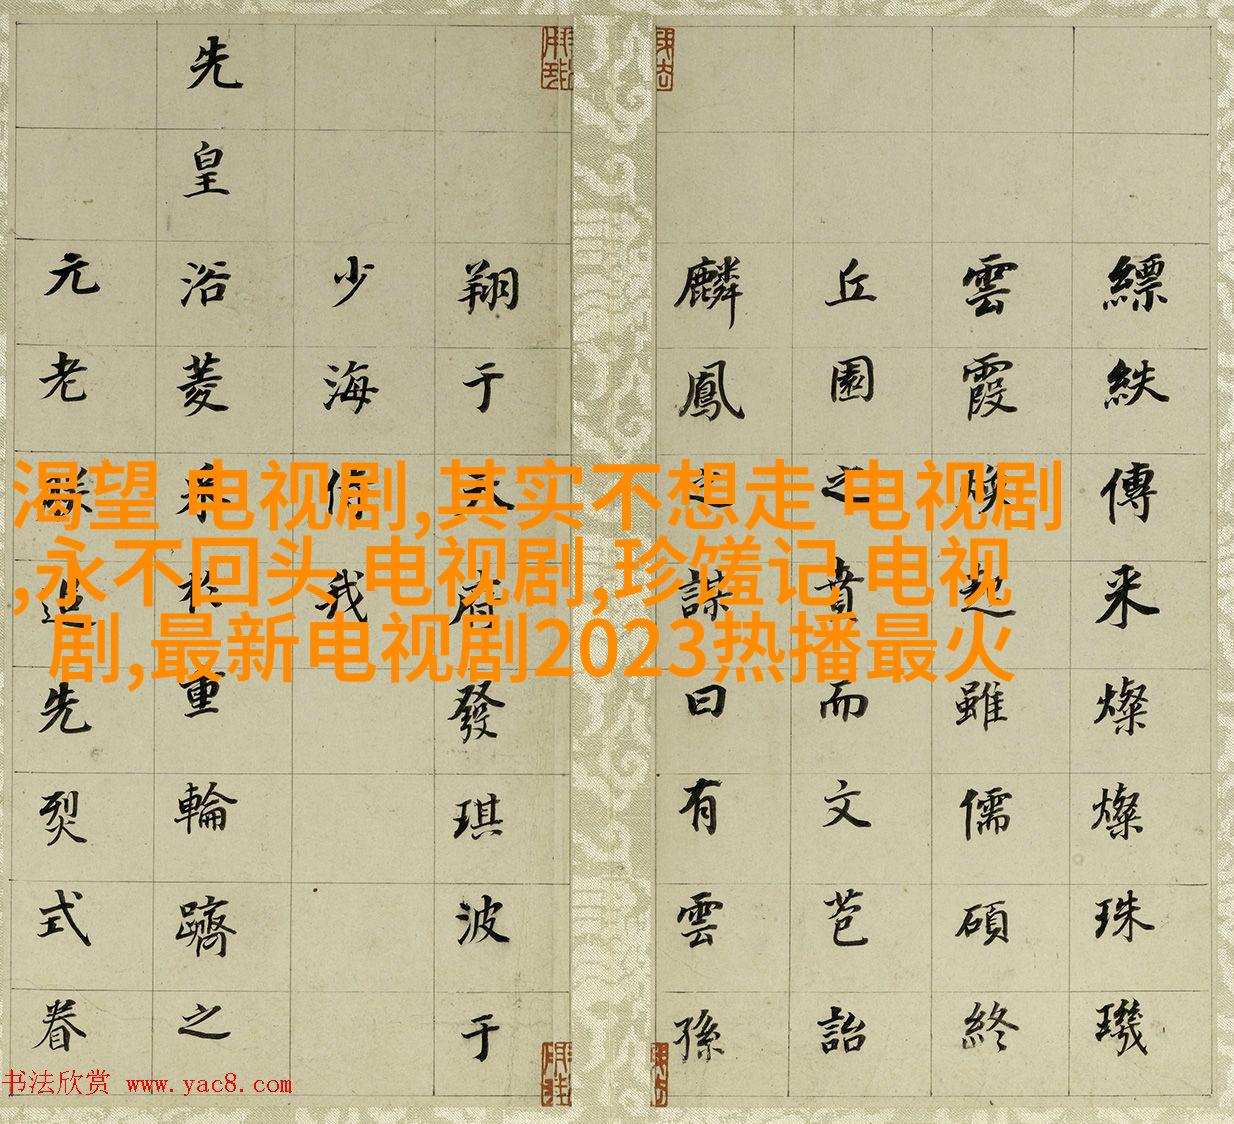 縹紩傳来燦燦珠璣
雲霞起雖儒碩終
丘園之賁而文苞詒
麟鳳之謀曰有雲孫
翔于天府發琪波于
少海我
先皇浴菱於重輪躋之
元老先烈式眷
渴望 电视剧,其实不想走 电视剧
,永不回头 电视剧,珍馐记 电视
剧,最新电视剧2023热播最火
书法欣赏 www.yac8.com